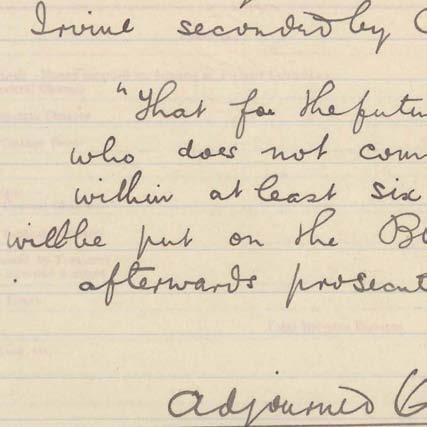 Irvine seconded by
"That for the futu
who does not com
within at least six
will be put on the B
afterwards prosecut
Adjourned